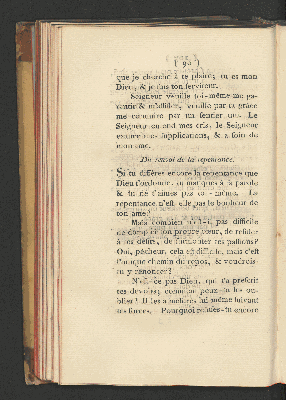 ( 90 )
que je cherche à te plaire; tu es mon
Dieu, & je suis ton serviteur.
Seigneur veuille toi-même me
& m'assister, veuille par ta grace
me conduire par un sentier. Le
Seigneur entend mes cris, le Seigneur
exauce mes supplications, & a soin de
mon ame.
Du renvoi de la repentance.
Si tu différes encore la repentance que
Dieu t'ordonne, tu manques à sa parole
& tu ne t'aimes pas toi-même. La
repentance n'est-elle pas le bonheur de
ton ame?
Mais combien n'est-il pas difficile
de dompter ton propre cœur, de résister
à tes désirs, de surmonter tes passions?
Oui, pécheur, cela est difficile, mais c'est
l'unique chemin du repos, & voudrois-
tu y renoncer?
N'est-ce pas Dieu, qui t'a prescrit
tes devoirs; comment peux-tu les ou-
blier? Il les a mesurés lui-même suivant
tes forces. Pourquoi refuses-tu encore